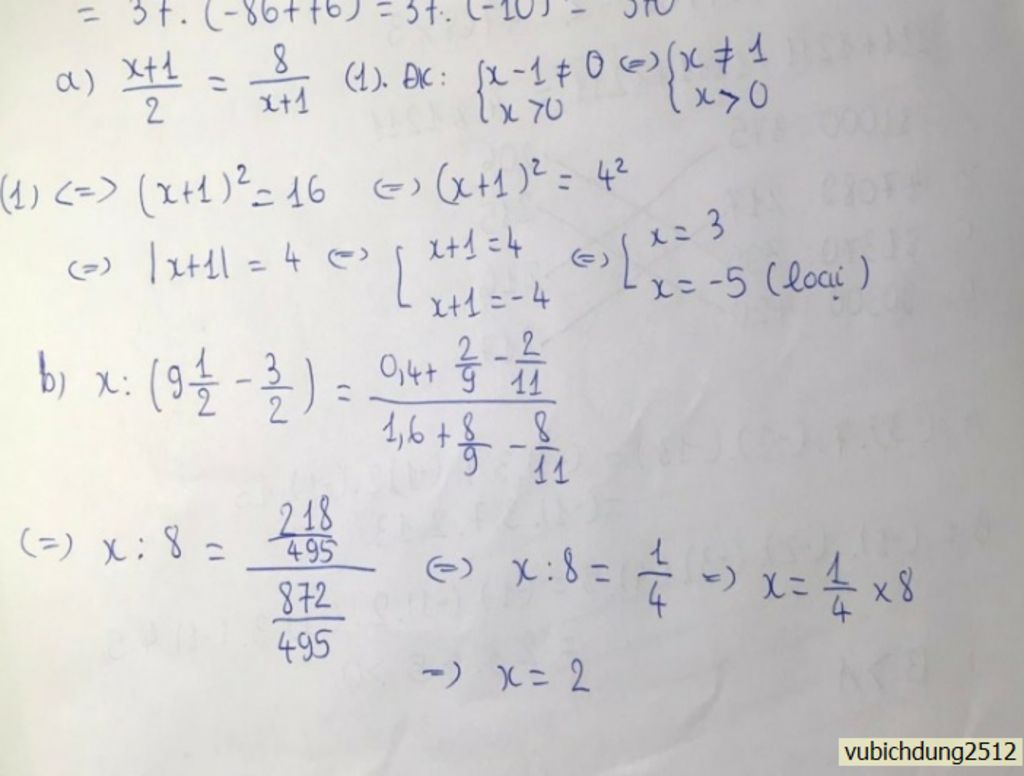 = 37. (-86+76) = 37. (-10) = -370
a) \frac{x+1}{2} = \frac{8}{x+1} (1). ĐK: { x - 1 ≠ 0 <=> { x ≠ 1
x > 0 x > 0
(1) <=> (x+1)² = 16 <=> (x+1)² = 4²
<=> |x+1| = 4 <=> [ x+1 = 4 <=> [ x = 3
x+1 = -4 x = -5 (loại)
b) x : (9\frac{1}{2} - \frac{3}{2}) = \frac{0,4 + \frac{2}{9} - \frac{2}{11}}{1,6 + \frac{8}{9} - \frac{8}{11}}
(=) x : 8 = \frac{\frac{218}{495}}{\frac{872}{495}} <=> x : 8 = \frac{1}{4} => x = \frac{1}{4} × 8
=> x = 2
vubichdung2512